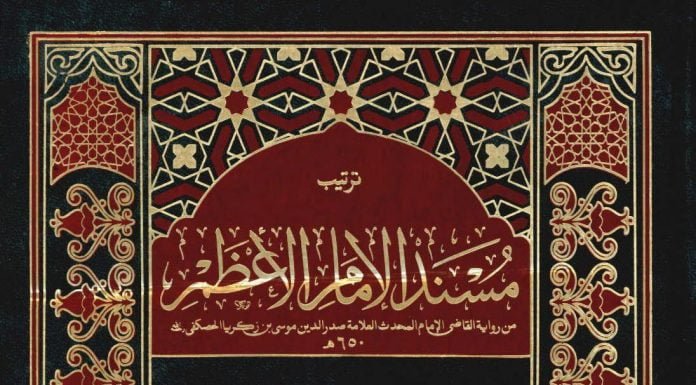 ترتيب
مُسْنَدُ الإِمَامِ الأَعْظَمِ
من رواية القاضي الإمام المحدث العلامة صدر الدين موسى بن زكريا الحصكفي
٦٥٠ هـ